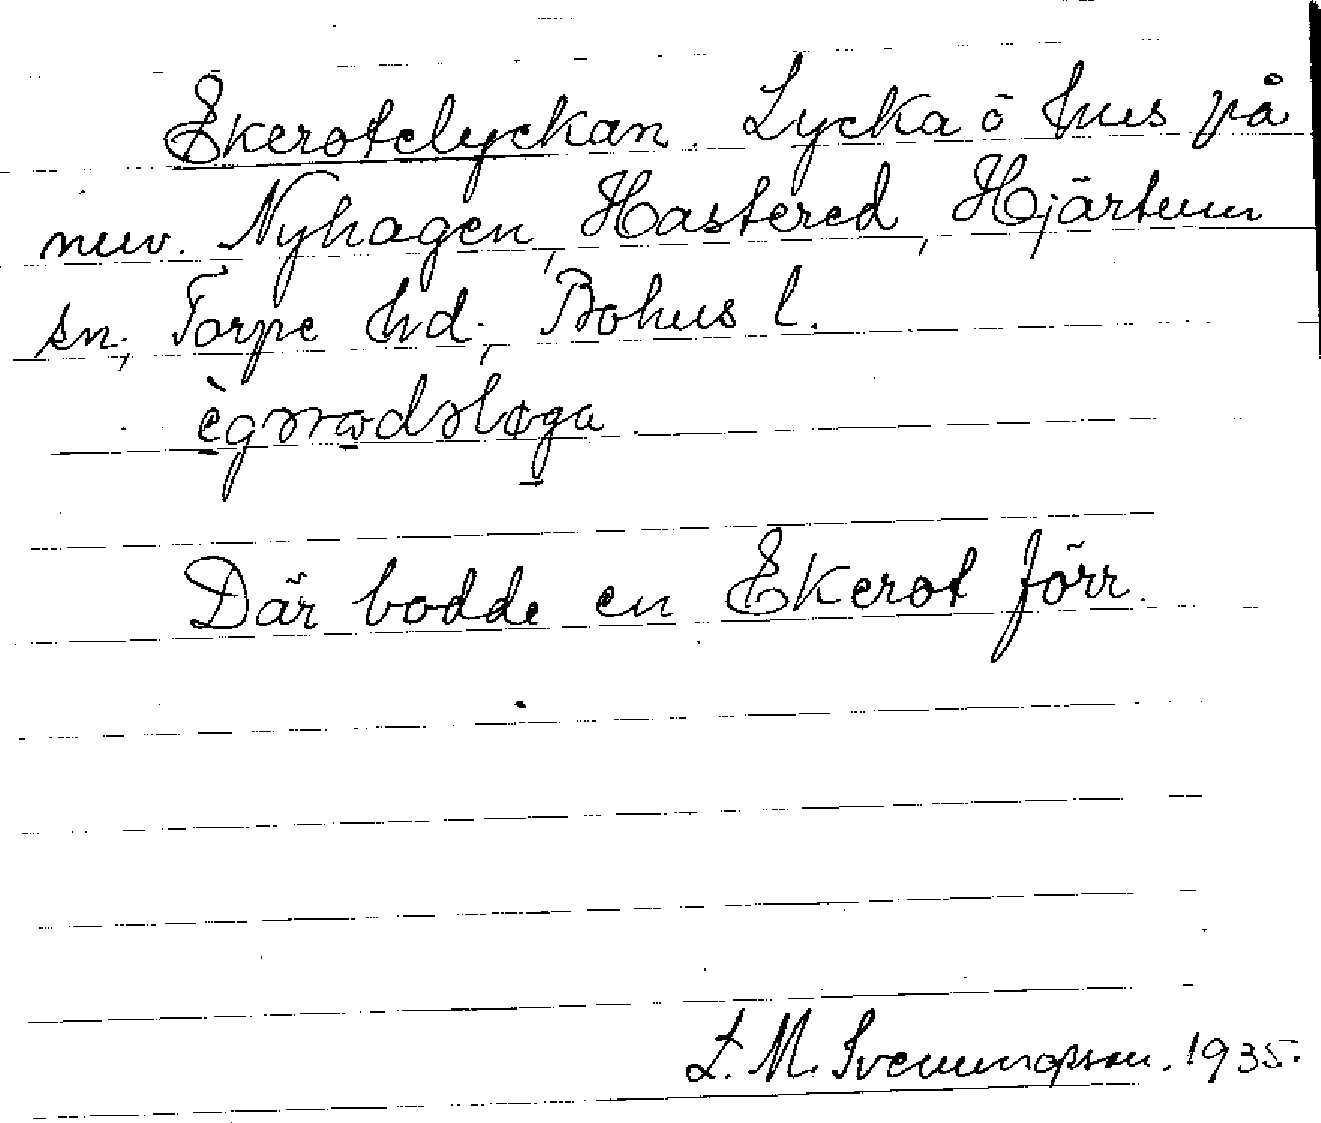 Ekerotelyckan. Lycka ō hus på
nuv. Nyhagen, Hastered, Hjärtum
sn; Torpe hd., Bohus l.
ègərɷdəløga
Där bodde en Ekerot förr.
L. M. Svenungsson. 1935.